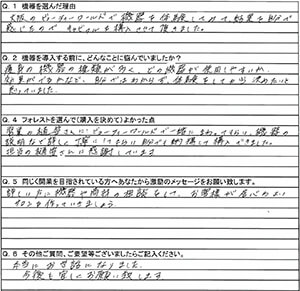 Q.1 機器を選んだ理由
大阪のビューティーワールドで機器を体験してみて、効果を自分で
感じたもので を購入させて頂きました。
Q.2 機器を導入する前に、どんなことに悩んでいましたか?
痩身の機器の種類が多く、どの機器が使用しやすいか
効果がでるかなど、自分ではわからず、体験をしてから決めたいと
思っていました。
Q.4 フォレストを選んで(購入を決めて)よかった点
営業の さんにビューティーワールドで一緒にまわってもらい、機器の
説明など詳しく丁寧にして 自分でも納得して購入できました。
担当の さんに感謝しています
Q.5 同じく開業を目指されている方へあなたから激励のメッセージをお願い致します。
詳しい方に機器や商材の相談をして、お客様が居心地のよい
サロンを作っていきましょう
Q.6 その他ご質問、ご要望等ございましたらご記入ください。
本当にお世話になりました。
今後も宜しくお願い致します。